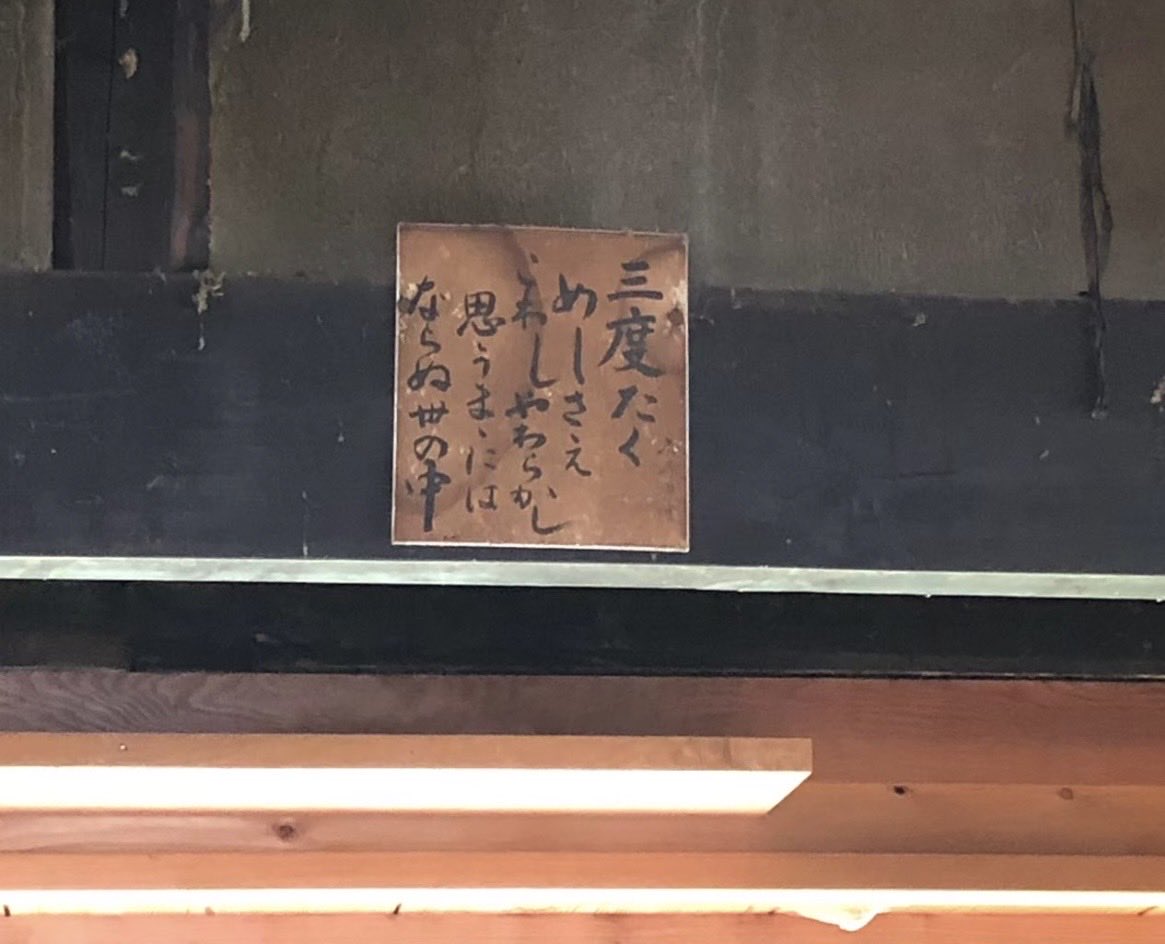 三度たく
めしさえ
こわしやわらかし
思うまゝには
ならぬ世の中